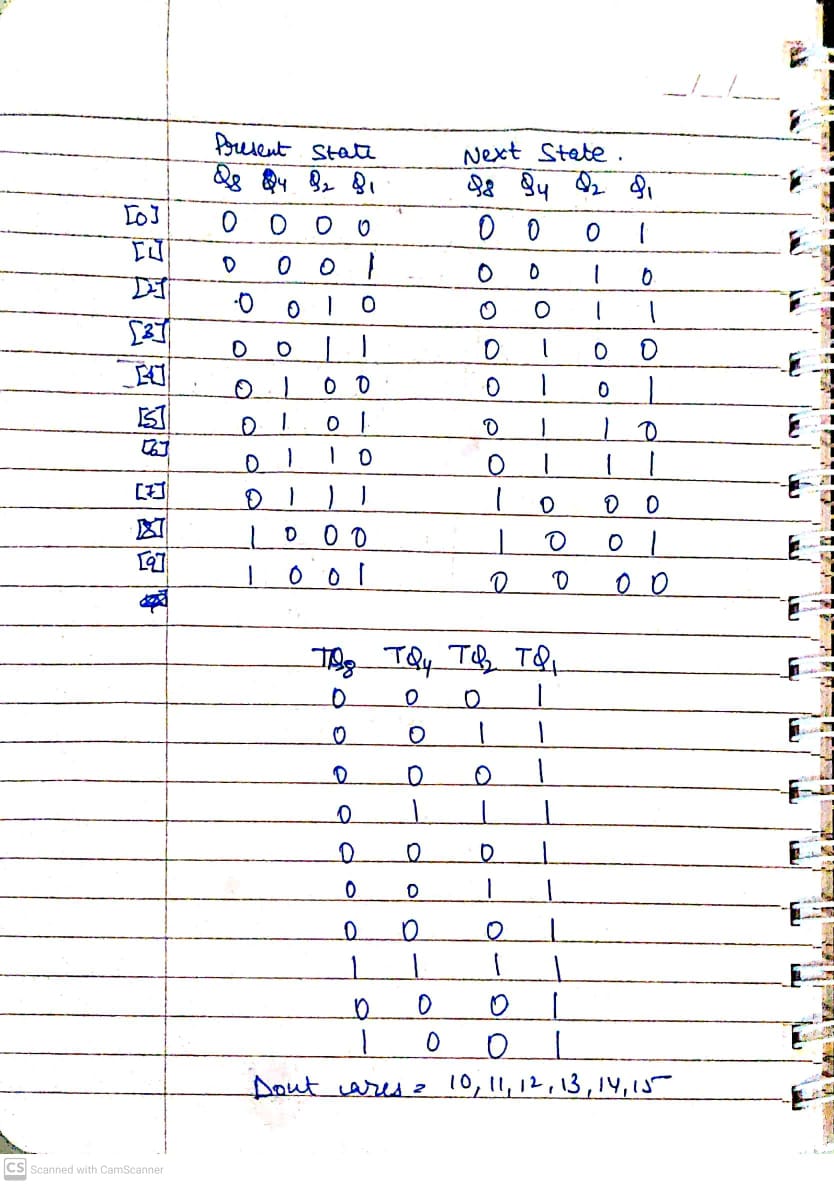 Present State Next State.
Q8 Q4 Q2 Q1 Q8 Q4 Q2 Q1
[0] 0 0 0 0 0 0 0 1
[1] 0 0 0 1 0 0 1 0
[2] 0 0 1 0 0 0 1 1
[3] 0 0 1 1 0 1 0 0
[4] 0 1 0 0 0 1 0 1
[5] 0 1 0 1 0 1 1 0
[6] 0 1 1 0 0 1 1 1
[7] 0 1 1 1 1 0 0 0
[8] 1 0 0 0 1 0 0 1
[9] 1 0 0 1 0 0 0 0
TQ8 TQ4 TQ2 TQ1
0 0 0 1
0 0 1 1
0 0 0 1
0 1 1 1
0 0 0 1
0 0 1 1
0 0 0 1
1 1 1 1
0 0 0 1
1 0 0 1
Dont cares = 10, 11, 12, 13, 14, 15
CS Scanned with CamScanner